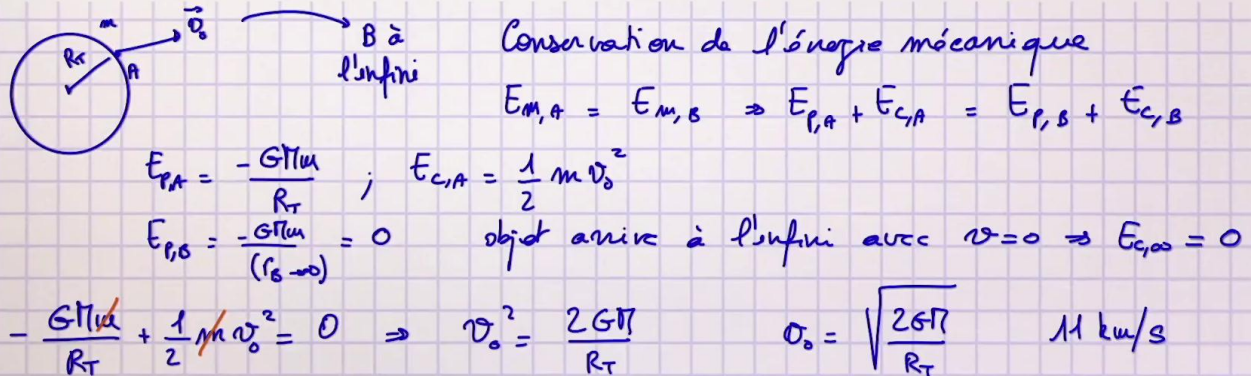 m
v⃗₀
R_T
A
B à
l'infini
Conservation de l'énergie mécanique
E_{m,A} = E_{m,B} ⇒ E_{p,A} + E_{c,A} = E_{p,B} + E_{c,B}
E_{p,A} = -GMm/R_T ; E_{c,A} = 1/2 m v₀²
E_{p,B} = -GMm/(r_B→∞) = 0 objet arrive à l'infini avec v=0 ⇒ E_{c,∞} = 0
- GMm/R_T + 1/2 m v₀² = 0 ⇒ v₀² = 2GM/R_T v₀ = √(2GM/R_T) 11 km/s